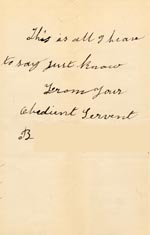 This is all I have
to say just know
From your
Obedient Servent
B